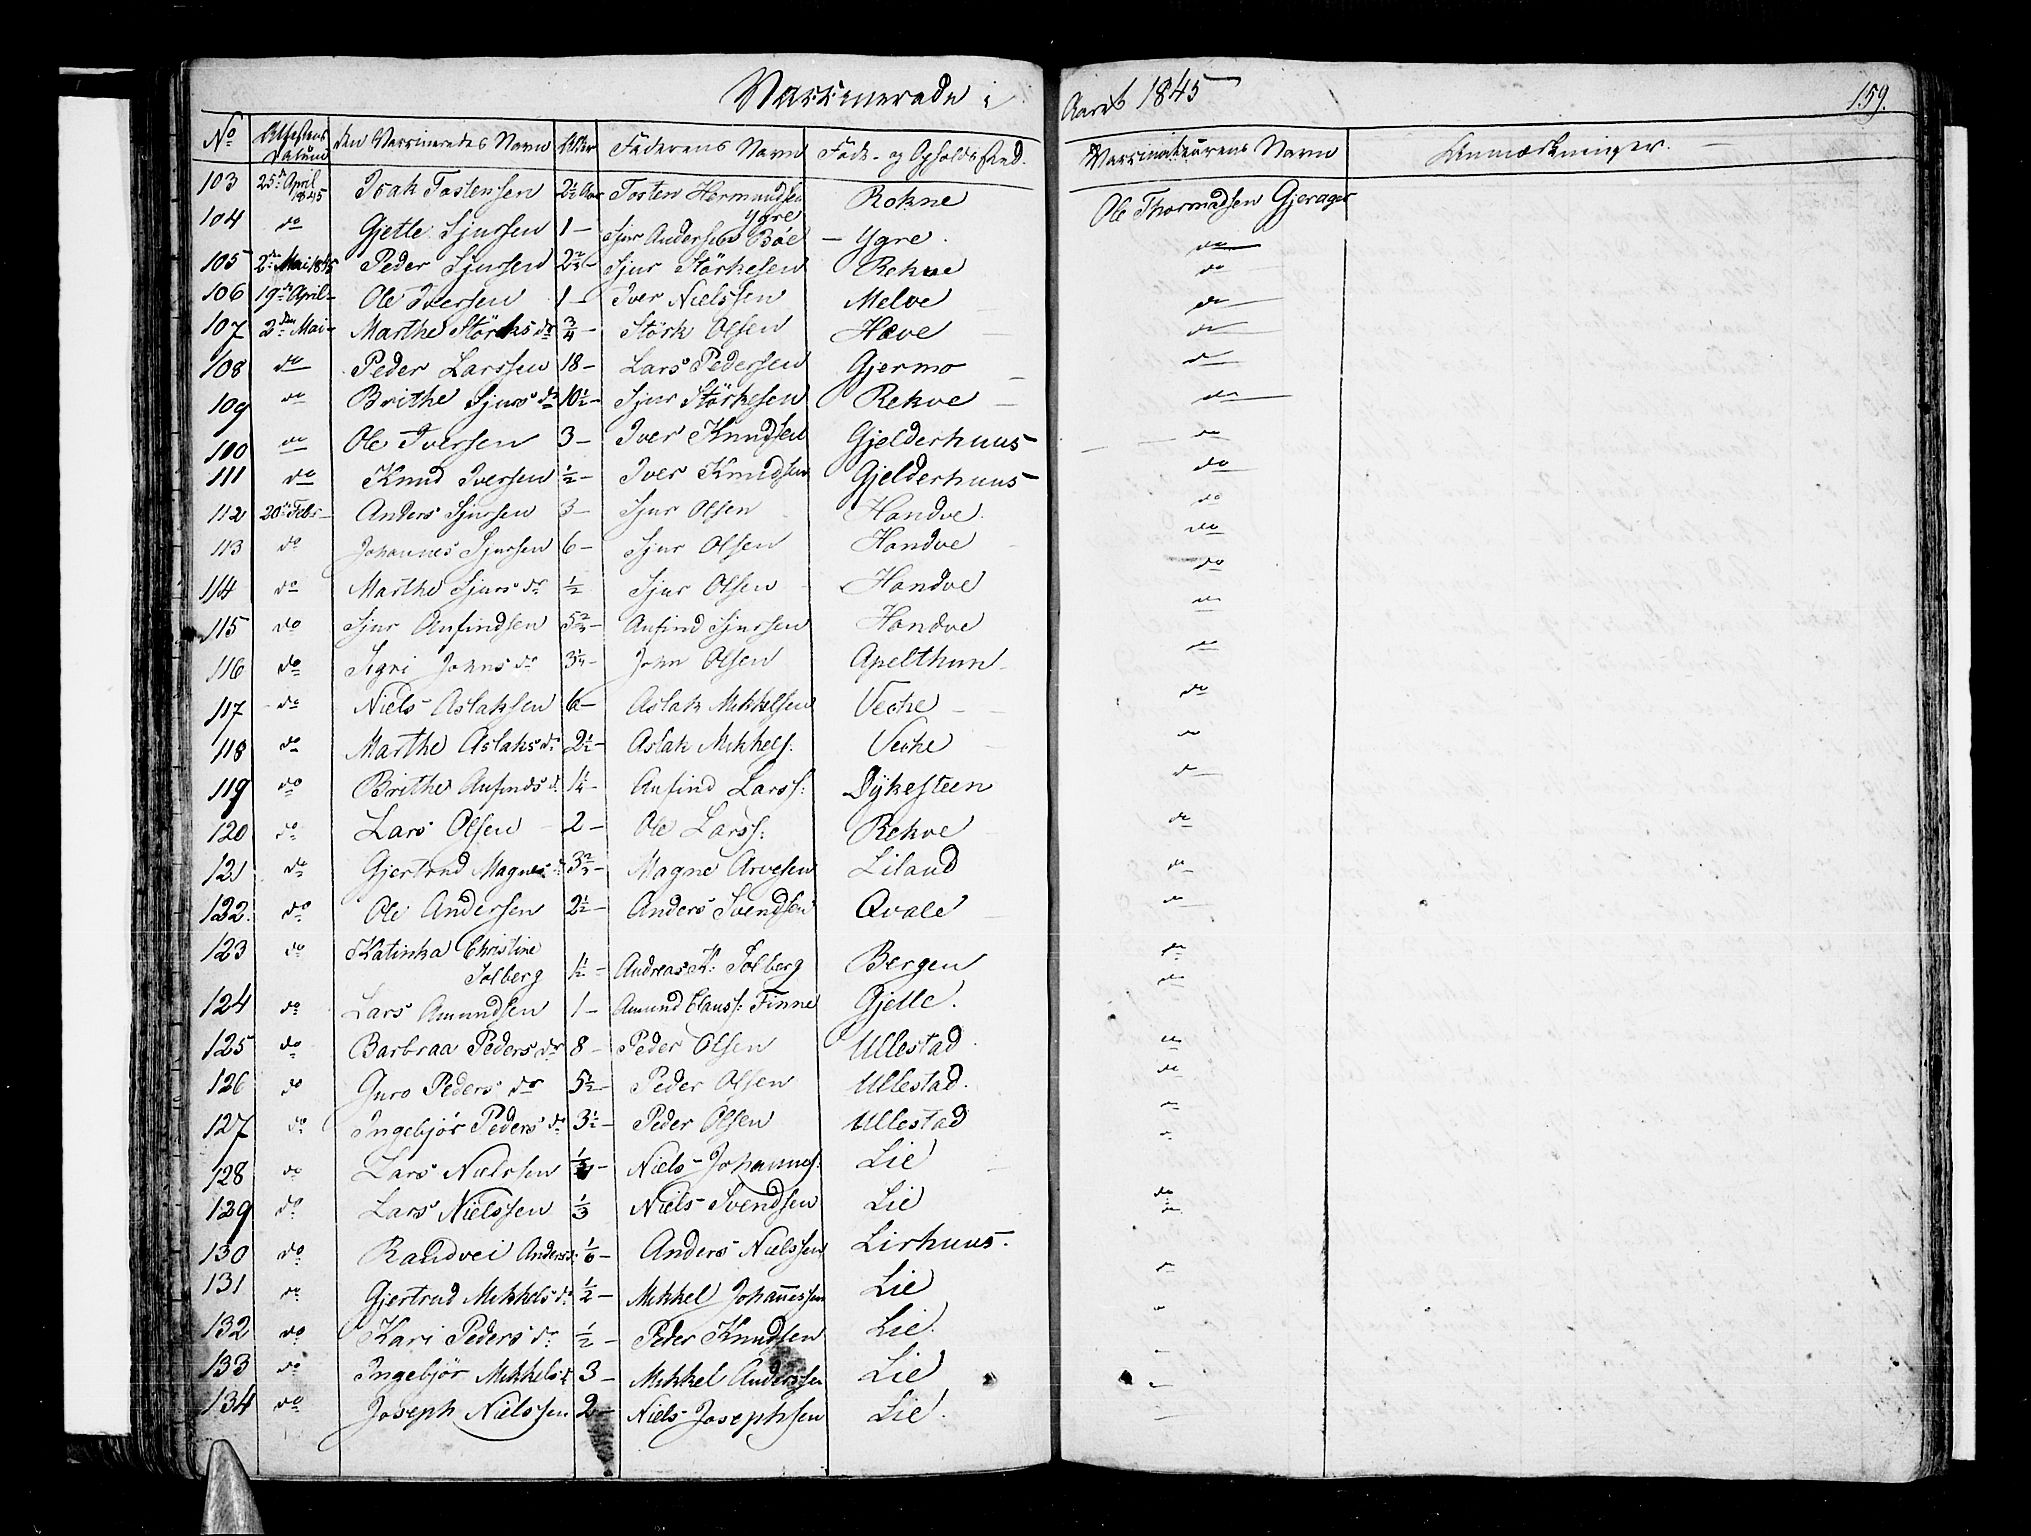 Vaccinerede i Aaret 1845 159.
No Attestens Datum den Vaccineredes Navn Alder Faderens Navn Føde- og Opholdssted. Vaccinateurens Navn Anmærkninger.
103 25de April 1845 Isak Tostensen 2½ Aar Tosten Hermundsen Rokne Ole Thormodsen Gjerager
Ygre
104 do Gjetle Sjursen 1 - Sjur Andersen Bøe - Ygre. do
105 2den Mai 1845 Peder Sjursen 2 - Sjur Störkesen Rekve do
106 19de April - Ole Iversen 1 - Iver Nielssen Melve do
107 2den Mai - Marthe Störks dr ¾ - Störk Olsen Hæve do
108 do Peder Larssen 18 - Lars Pedersen Gjermo do
109 do Brithe Sjurs dr 10½ - Sjur Störkesen Rekve do
100 do Ole Iversen 3 - Iver Knudsen Gjelderhuus do
111 do Knud Iversen ½ - Iver Knudsen Gjelderhuus do
112 20de Febr - Anders Sjursen 3 - Sjur Olsen Handve. do
113 do Johannes Sjursen 6 - Sjur Olsen Handve do
114 do Marthe Sjurs dr ½ Sjur Olsen Handve do
115 do Sjur Anfindsen 5 - Anfind Sjursen Handve do
116 do Sigri Johns dr 3¼ - John Olsen Apelthun do
117 do Niels Aslaksen 6 - Aslak Mikkelsen Veche do
118 do Marthe Aslaks dr 2½ - Aslak Mikkels: Veche do
119 do Brithe Anfinds d. 1¼ - Anfind Larss: Dÿkesteen do
120 do Lars Olsen 2 - Ole Larss: Rekve do
121 do Gjertrud Magnes d: 3 - Magne Arvesen Liland do
122. do Ole Andersen 2½ - Anders Svendsen Qvale do
123 do Katinka Christine
Solberg 1½ - Andreas K: Solberg Bergen do
124 do Lars Amundsen 1 - Amund Clauss: Finne Gjelle. do
125 do Barbraa Peders dr 8 - Peder Olsen Ullestad do
126 do Guro Peders dr 5½ - Peder Olsen Ullestad. do
127 do Ingebjör Peders dr 3½ - Peder Olsen Ullestad
128 do Lars Nielssen - Niels Johannes: Lie
129 do Lars Nielssen ⅓ Niels Svendsen Lie do
130 do Randvei Anders d: ⅙ - Anders Nielssen Lirhuus.
131 do Gjertrud Mikkels dr ½ - Mikkel Johannessen Lie
132 do Kari Peders dr ½ - Peder Knudsen Lie.
133 do Ingebjör Mikkels d 3 - Mikkel Anderssen Lie
134 do Joseph Nielssen 2 - Niels Josephsen Lie.